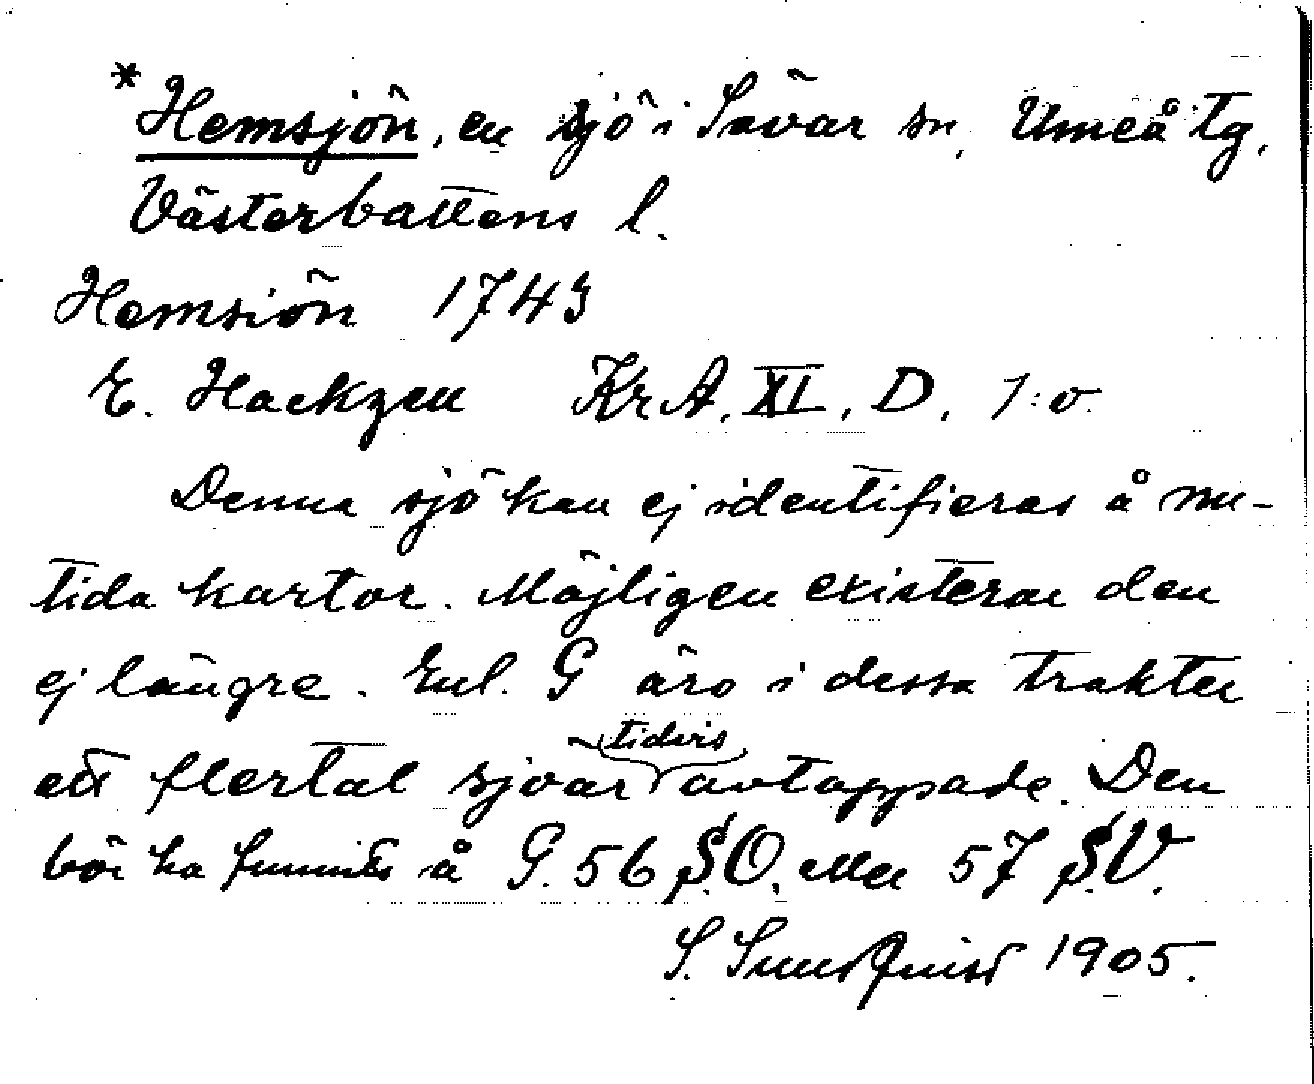 *Hemsjön, en sjö i Sävar sn, Umeå tg,
Västerbottens l.
Hemsiön 1743
E. Hackzen KrA, XI, D, 1:o.
Denna sjö kan ej identifieras å nu-
tida kartor. Möjligen existerar den
ej längre. Enl. G äro i dessa trakter
tidvis
ett flertal sjöar avtappade. Den
bör ha funnits å G. 56 S.O. eller 57 S.V.
S. Sundquist 1905.